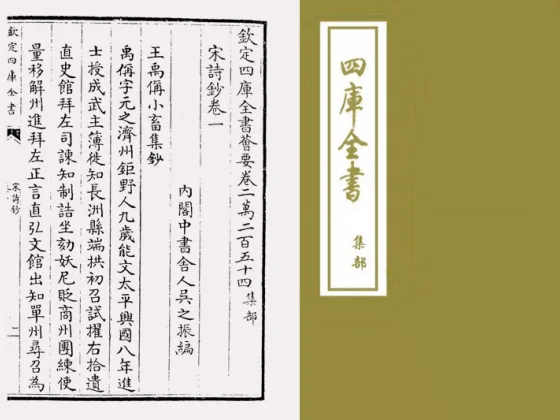 欽定四庫全書薈要卷二萬二百五十四 集部
宋詩鈔卷一
內閣中書舍人吳之振編
王禹偁小畜集鈔
禹偁字元之濟州鉅野人九歲能文太平興國八年進
士授成武主簿徙知長洲縣端拱初召試擢右拾遺
直史館拜左司諫知制誥坐劾妖尼貶商州團練使
量移解州進拜左正言直弘文館出知單州尋召為
欽定四庫全書
宋詩鈔
二
四庫全書
集部